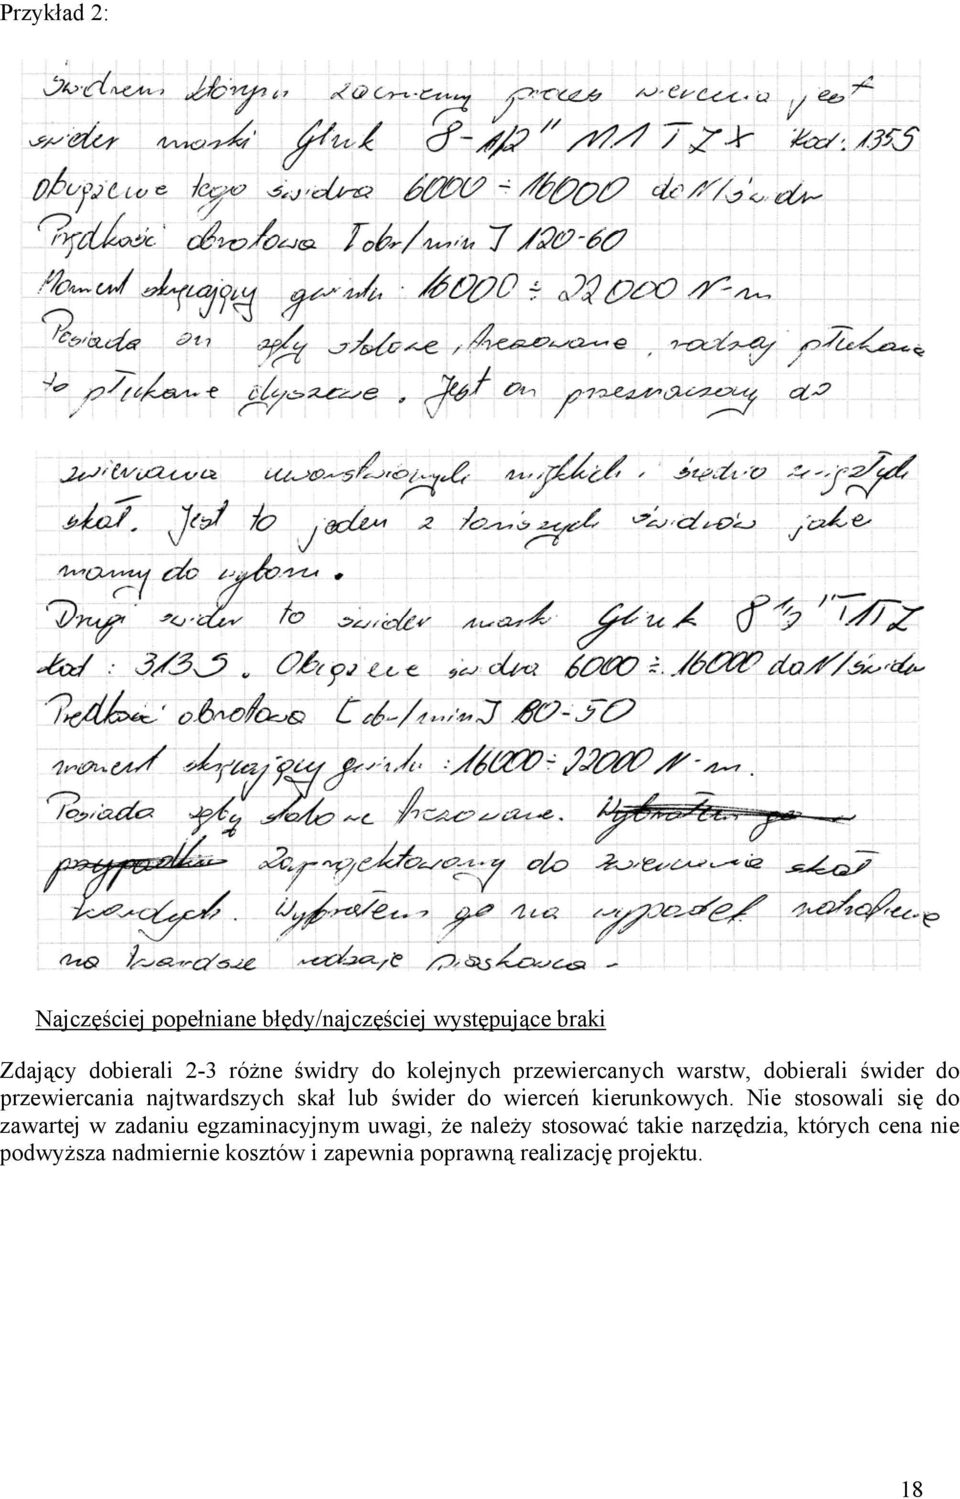 Przykład 2:
Świdrem którym zaczniemy proces wiercenia jest
świder marki Glinik 8-1/2" M1TZX kod: 135S
Obciążenie tego świdra 6000 ÷ 16000 daN/świdr
Prędkość obrotowa [obr/min] 120-60
Moment skręcający gwintu 16000 ÷ 22000 N·m
Posiada on zęby stalowe, frezowane, rodzaj płukania
to płukanie dyszowe. Jest on przeznaczony do
zwiercania uwarstwionych miękkich i średnio zwięzłych
skał. Jest to jeden z tańszych świdrów jakie
mamy do wyboru.
Drugi świder to świder marki Glinik 8 1/2" T1TZ
kod: 313S. Obciążenie świdra 6000 ÷ 16000 daN/świdr
Prędkość obrotowa [obr/min] 80-50
moment skręcający gwintu: 16000 ÷ 22000 N·m.
Posiada zęby stalowe frezowane. Wybrałem go
przypadku Zaprojektowany do zwiercania skał
twardych. Wybrałem go na wypadek natrafienia
na twardsze rodzaje piaskowca.
Najczęściej popełniane błędy/najczęściej występujące braki
Zdający dobierali 2-3 różne świdry do kolejnych przewiercanych warstw, dobierali świder do
przewiercania najtwardszych skał lub świder do wierceń kierunkowych. Nie stosowali się do
zawartej w zadaniu egzaminacyjnym uwagi, że należy stosować takie narzędzia, których cena nie
podwyższa nadmiernie kosztów i zapewnia poprawną realizację projektu.
18